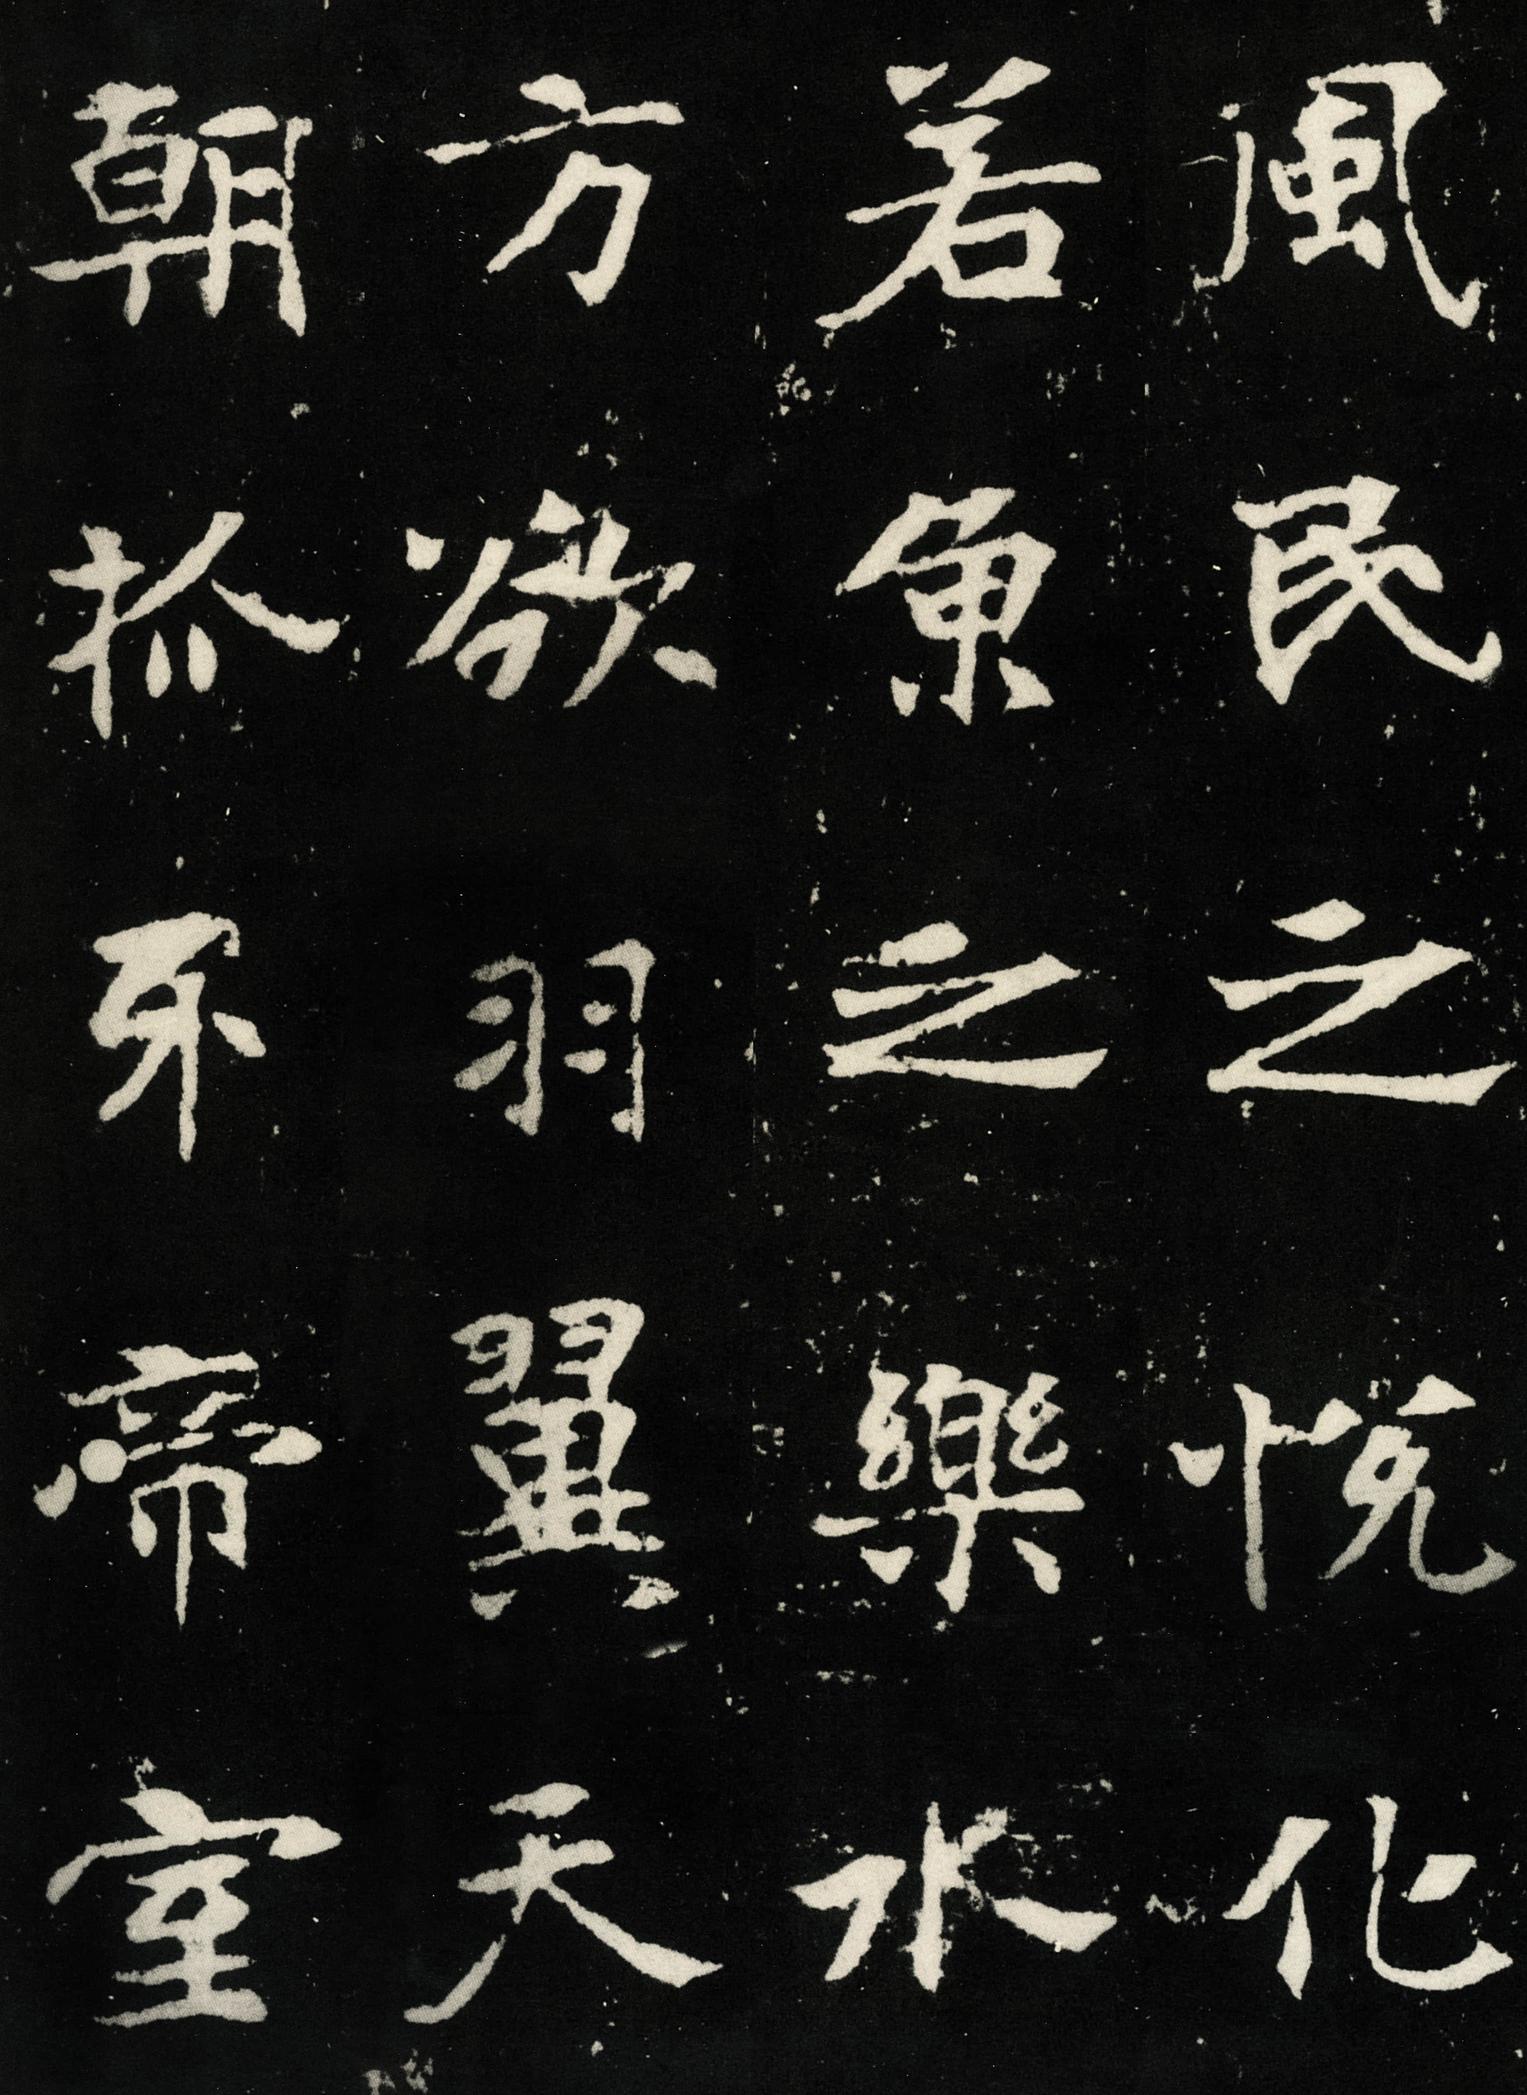 風民之悅化
若魚之樂水
方欲羽翼天
朝抓牙帝室